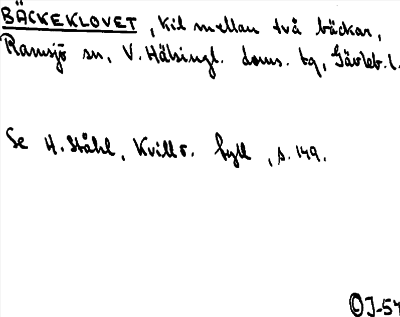 BÄCKEKLOVET, kil mellan två bäckar,
Ramsjö sn, V. Hälsingl. doms. tg, Gävleb. l.
Se H. Ståhl, Kvill o. byll, s. 149.
©J-57